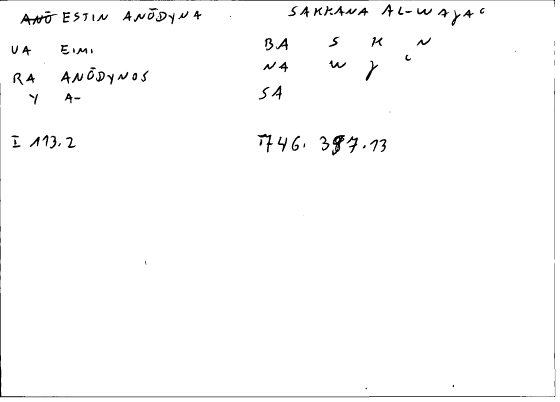 ANŌ ESTIN ANŌDYNA
UA EIMI
RA ANŌDYNOS
Y A-
I 113.2
SAKKANA AL-WAJAC
BA S K N
NA W J C
SA
I 746. 387.13